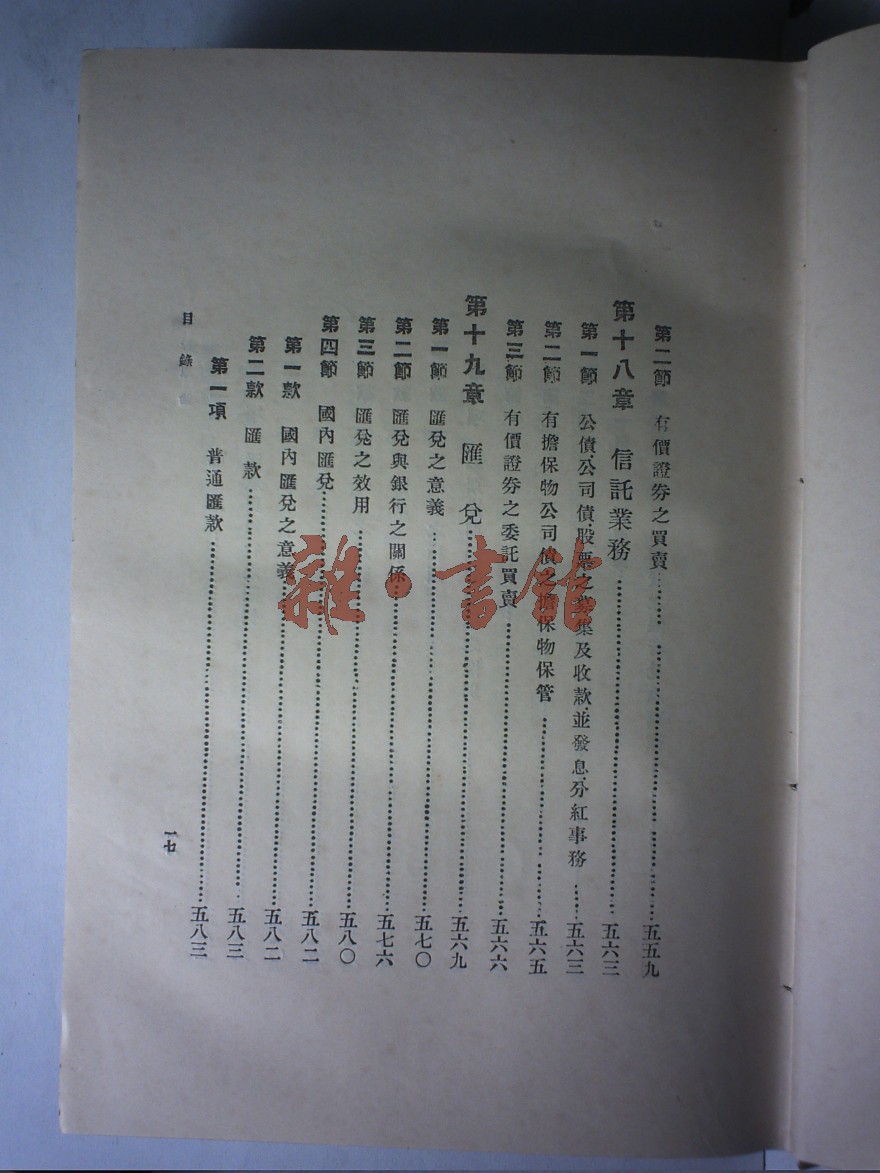 第二節 有價證券之買賣…… 五五九
第十八章 信託業務…… 五六三
第一節 公債公司債股票之募集及收款並發息分紅事務…… 五六三
第二節 有擔保物公司債之擔保物保管…… 五六五
第三節 有價證券之委託買賣…… 五六六
第十九章 匯兌…… 五六九
第一節 匯兌之意義…… 五七〇
第二節 匯兌與銀行之關係…… 五七六
第三節 匯兌之效用…… 五八〇
第四節 國內匯兌…… 五八二
第一款 國內匯兌之意義…… 五八二
第二款 匯款…… 五八三
第一項 普通匯款…… 五八三
目錄
一七
雜·書館